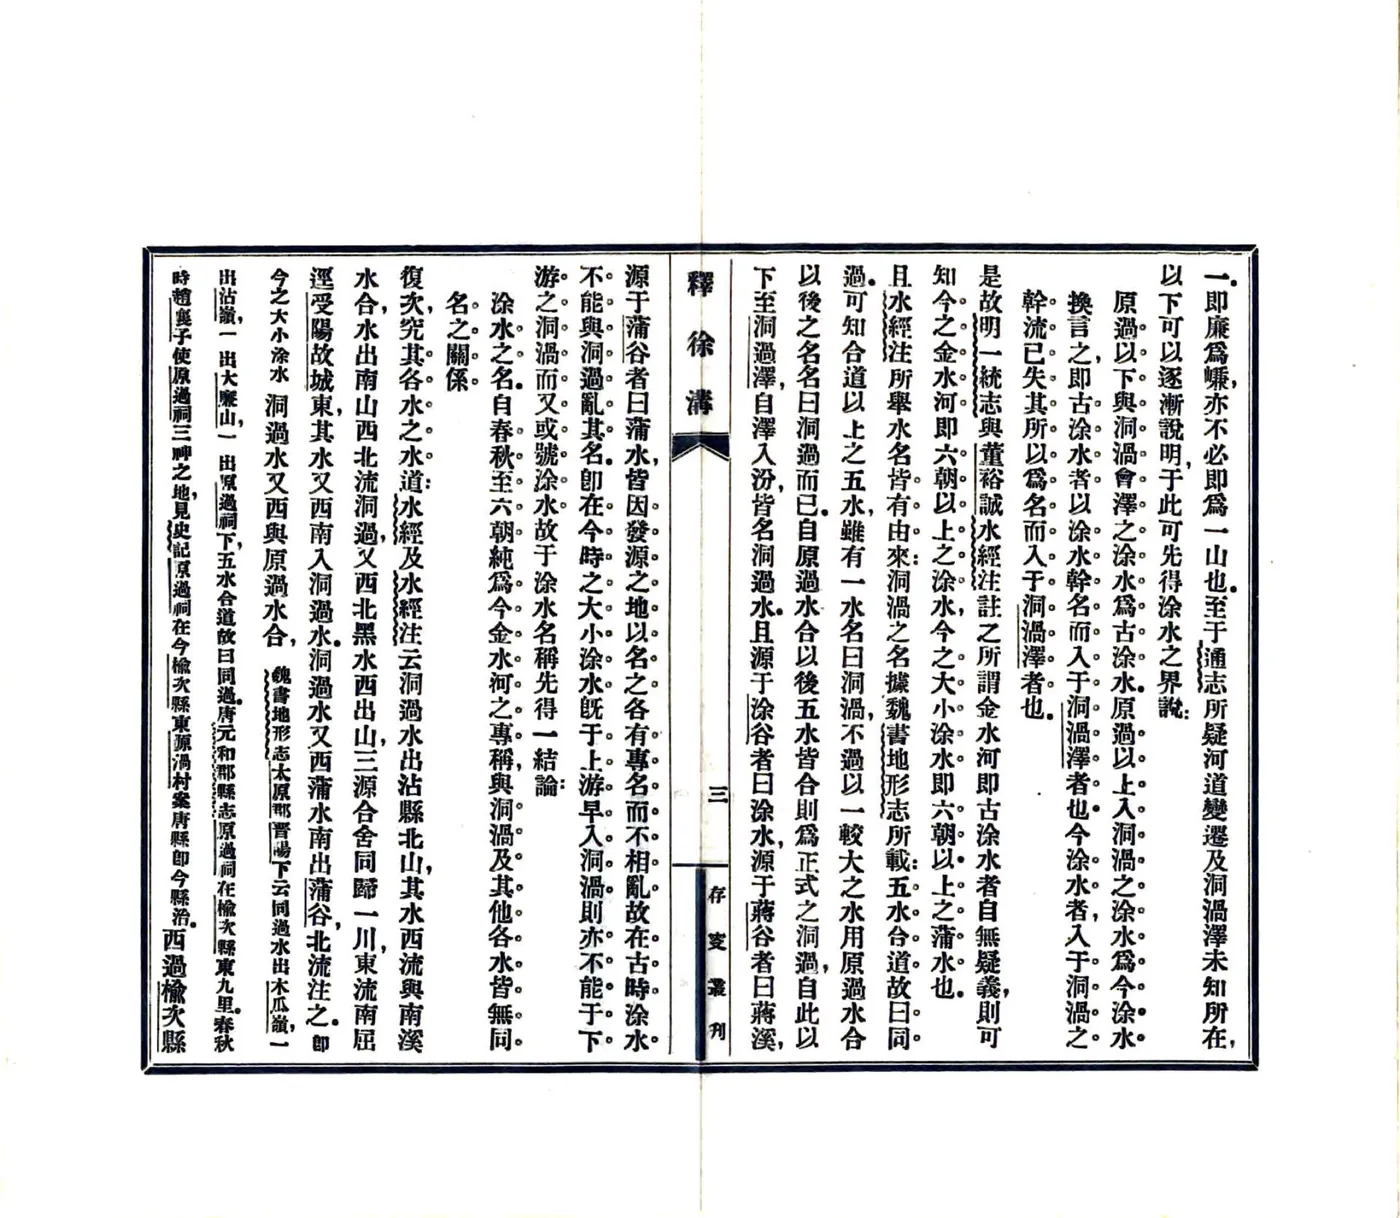 一。即廉爲㡘，亦不必即爲一山也。至于通志所疑河道變遷及洞渦澤未知所在，
以下可以逐漸說明，于此可先得涂水之界說：
原過以下與洞渦會澤之涂水爲古涂水。原過以上入洞渦之涂水爲今涂水
換言之，即古涂水者以涂水幹名而入于洞渦澤者也。今涂水者，入于洞渦之
幹流已失其所以爲名而入于洞渦澤者也。
是故明一統志與董裕誠水經注註之所謂金水河即古涂水者自無疑義，則可
知今之金水河即六朝以上之涂水，今之大小涂水即六朝以上之蒲水也。
且水經注所舉水名皆有由來：洞渦之名據魏書地形志所載：五水合道故曰同
過。可知合道以上之五水，雖有一水名曰洞渦，不過以一較大之水用原過水合
以後之名名曰洞過而已。自原過水合以後五水皆合則爲正式之洞過，自此以
下至洞過澤，自澤入汾，皆名洞過水。且源于涂谷者曰涂水，源于蔣谷者曰蔣溪，
釋徐溝
三
存叢刊
源于蒲谷者曰蒲水，皆因發源之地以名之各有專名而不相亂故在古時涂水
不能與洞過亂其名。卽在今時之大小涂水旣于上游早入洞渦則亦不能于下
游之洞渦而又或號涂水故于涂水名稱先得一結論：
涂水之名。自春秋至六朝純爲今金水河之專稱，與洞渦及其他各水皆無同
名之關係。
復次，究其各水之水道：水經及水經注云洞過水出沾縣北山，其水西流與南溪
水合，水出南山西北流洞過，又西北黑水西出山，三源合舍同歸一川，東流南屈
逕受陽故城東，其水又西南入洞過水。洞過水又西蒲水南出蒲谷，北流注之。卽
今之大小涂水 洞過水又西與原過水合，魏書地形志太原郡晋陽下云同過水出木瓜嶺，一
出沾嶺，一出大廉山，一出原過祠下，五水合道故曰同過。唐元和郡縣志原過祠在榆次縣東九里。春秋
時趙襄子使原過祠三神之地，見史記原過祠在今榆次縣東源渦村案唐縣卽今縣治。西過榆次縣